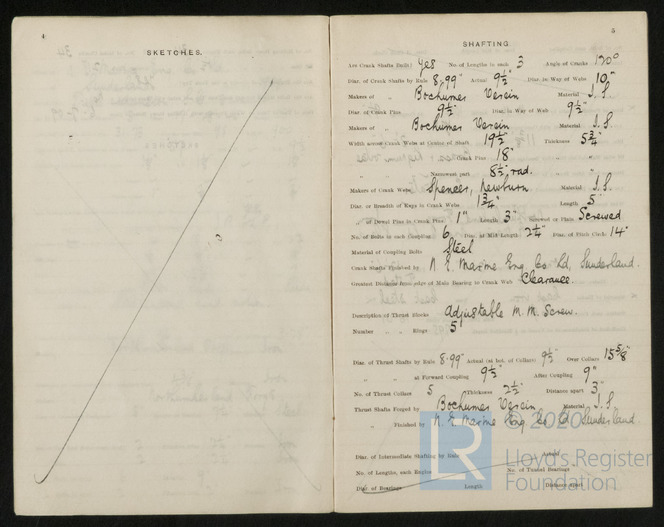 4
SKETCHES.
5
SHAFTING
Are Crank Shafts Built? yes No. of Lengths in each 3 Angle of Cranks 120°
Diar. of Crank Shafts by Rule 8.99" Actual 9½" Diar. in Way of Webs 10"
Makers of " Bochumer Verein Material I.S.
Diar. of Crank Pins 9½" Diar. in Way of Web 9½"
Makers of " Bochumer Verein Material I.S.
Width across Crank Webs at Centre of Shaft 19½" Thickness 5¾"
" " " Crank Pins 18" " "
" " Narrowest part 8½" rad. " "
Makers of Crank Webs Spencer, Newburn Material I.S.
Diar. or Breadth of Keys in Crank Webs 1¾" Length 5"
" of Dowel Pins in Crank Pins 1" Length 3" Screwed or Plain Screwed
No. of Bolts in each Coupling 6 Diar. at Mid Length 2¼" Diar. of Pitch Circle 14"
Material of Coupling Bolts Steel
Crank Shafts Finished by N. E. Marine Eng. Co Ld, Sunderland.
Greatest Distance from edge of Main Bearing to Crank Web Clearance.
Description of Thrust Blocks Adjustable M. M. Screw.
Number " " Rings 5
Diar. of Thrust Shafts by Rule 8.99" Actual (at bot. of Collars) 9½" Over Collars 15⅝"
" " at Forward Coupling 9½" After Coupling 9"
No. of Thrust Collars 5 Thickness 2½" Distance apart 3"
Thrust Shafts Forged by Bochumer Verein Material I.S.
" Finished by N. E. Marine Eng. Co Ld, Sunderland.
Diar. of Intermediate Shafting by Rule Actual
No. of Lengths, each Engine No. of Tunnel Bearings
Diar. of Bearings Length Distance apart
LR © 2020
Lloyd's Register
Foundation